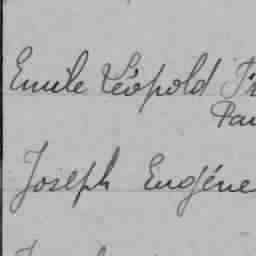 Emile Léopold
Joseph Eugéne